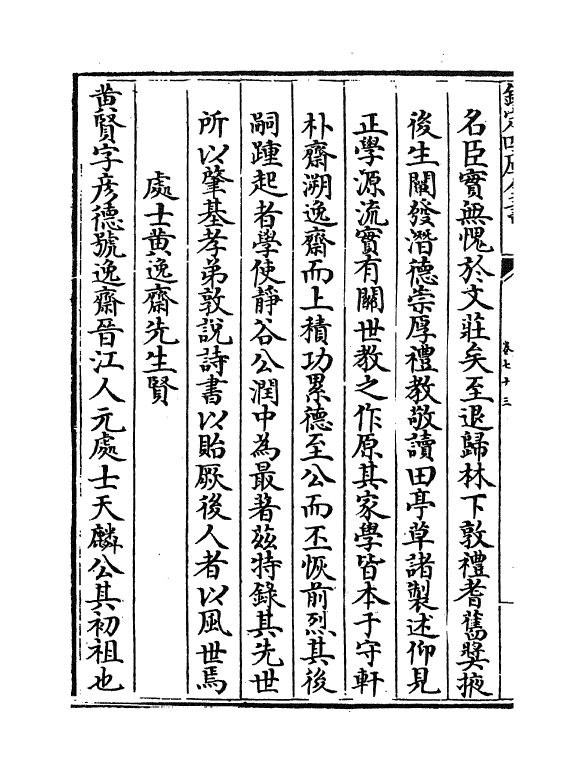 名臣實無愧於文莊矣至退歸林下敦禮耆舊奬掖
後生闡發潛德崇厚禮教敬讀田亭草諸製述仰見
正學源流實有關世教之作原其家學皆本于守軒
朴齋溯逸齋而上積功累德至公而丕恢前烈其後
嗣踵起者學使靜谷公潤中為最著茲特錄其先世
所以肇基孝弟敦說詩書以貽厥後人者以風世焉
處士黄逸齋先生賢
黄賢字彦德號逸齋晉江人元處士天麟公其初祖也
卷七十三